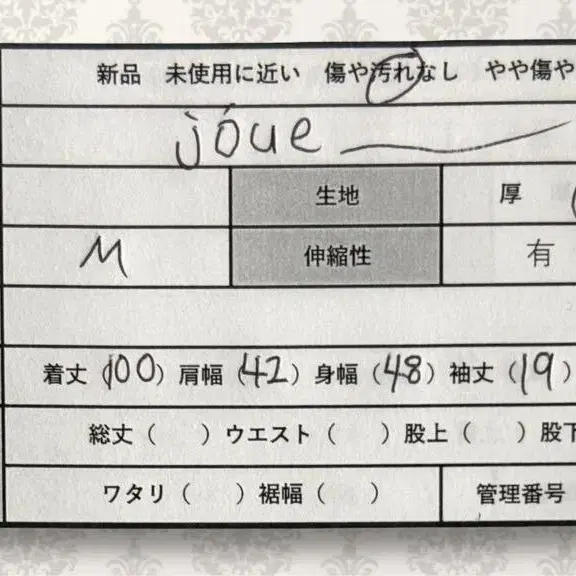 新品 未使用に近い 傷や汚れなし やや傷や
jóue
生地 厚
M 伸縮性 有
着丈（100）肩幅（42）身幅（48）袖丈（19）
総丈（ ）ウエスト（ ）股上（ ）股下
ワタリ（ ）裾幅（ ） 管理番号